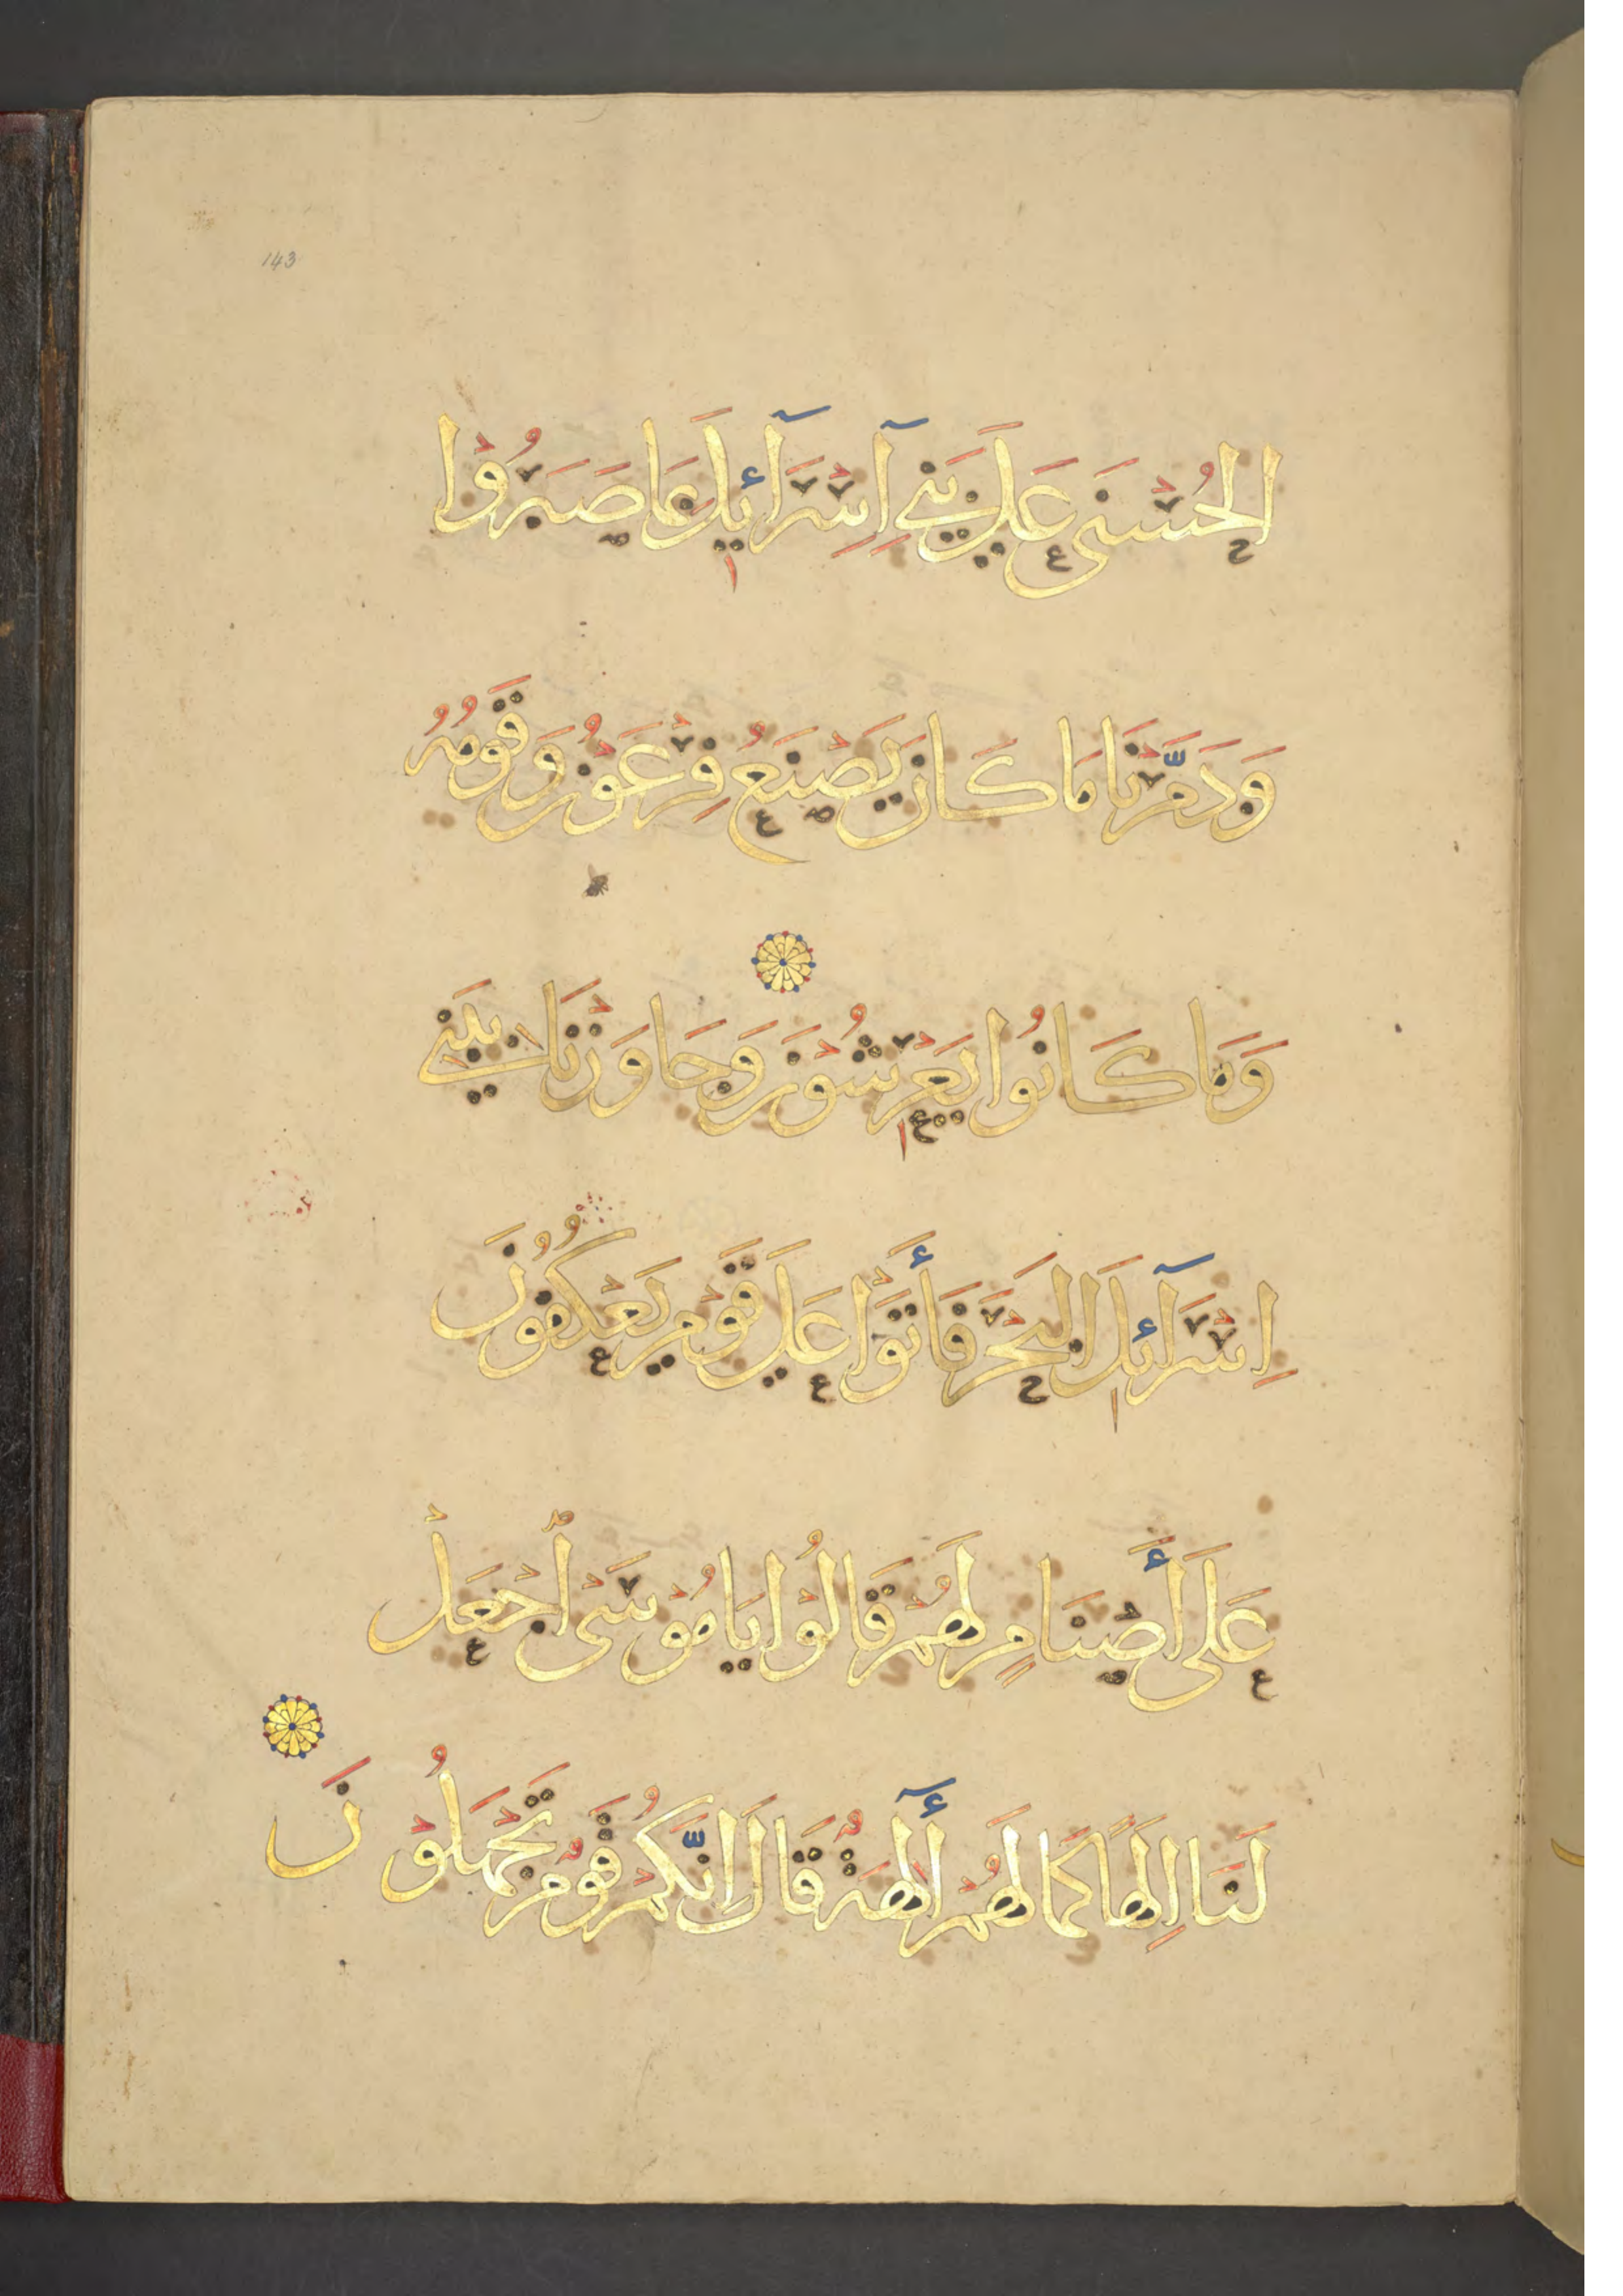 143
الْحُسْنَى عَلَى بَنِي آسْرَآئِيلَ بِمَا صَبَرُوْا
وَدَمَّرْنَا مَا كَانَ يَصْنَعُ فِرْعَوْنُ وَقَوْمُهُ
وَمَا كَانُوا يَعْرِشُوْنَ وَجَاوَزْنَا بِبَنِي
اِسْرَآئِلَ الْبَحْرَ فَأَتَوْا عَلَى قَوْمٍ يَعْكُفُونَ
عَلَى أَصْنَامٍ لَهُمْ قَالُوْا يَا مُوْسَى اجْعَلْ
لَنَا اِلَهًا كَمَا لَهُمْ أَلِهَةٌ قَالَ اِنَّكُمْ قَوْمٌ تَجْهَلُوْنَ